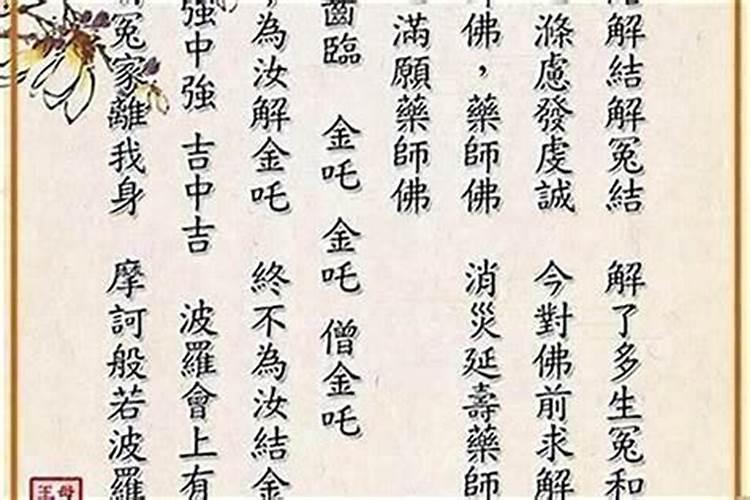 解結解冤結 解了多生冤和
滌慮發虔誠 今對佛前求解
佛，藥師佛 消災延壽藥師
滿願藥師佛
齒臨 金吒 金吒 僧金吒
為汝解金吒 終不為汝結金
強中強 吉中吉 波羅會上有
冤家離我身 摩訶般若波羅